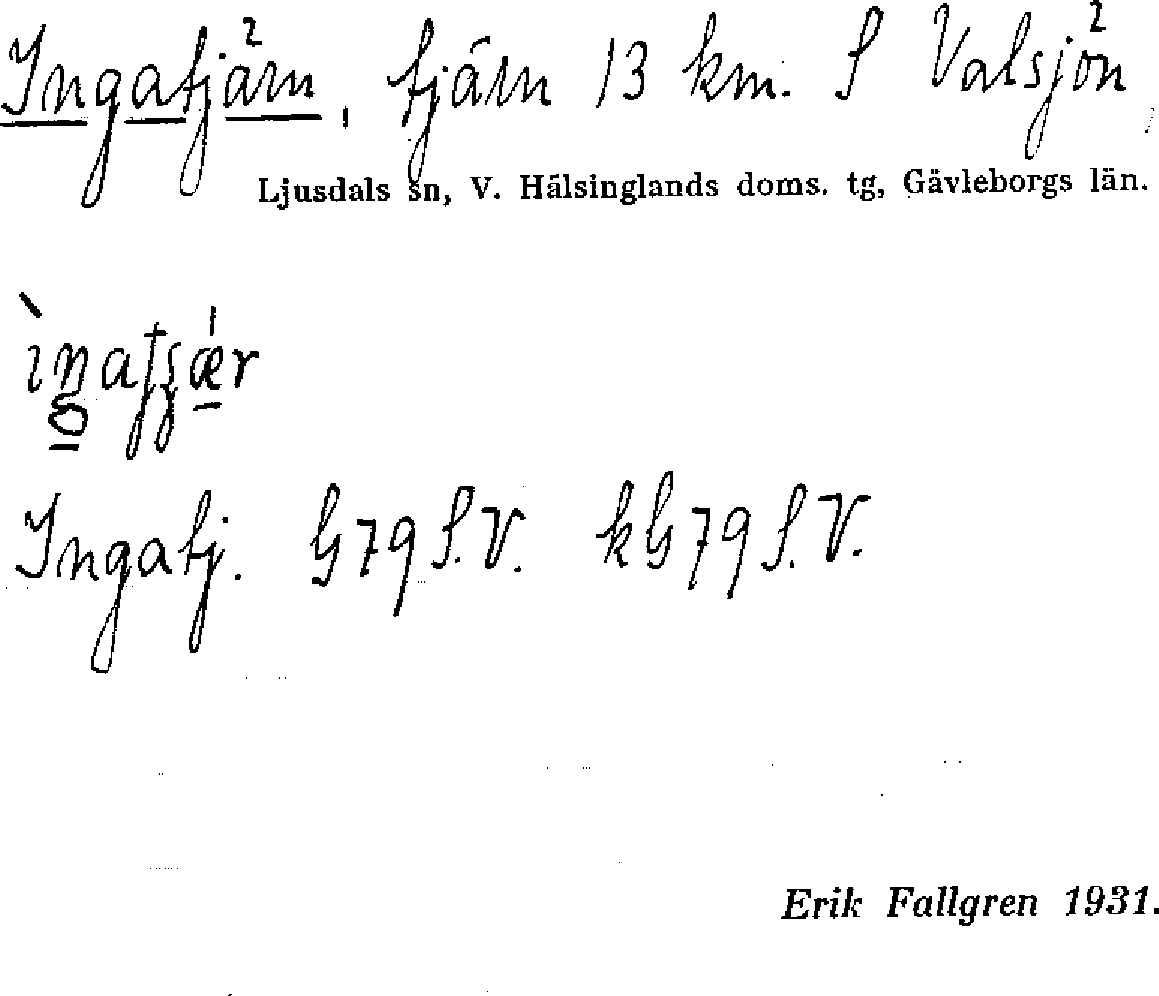 Ingatjärn, tjärn 13 km. S Valsjön,
Ljusdals sn, V. Hälsinglands doms. tg, Gävleborgs län.
Ingatj. G 79 S.V. kG 79 S.V.
Erik Fallgren 1931.